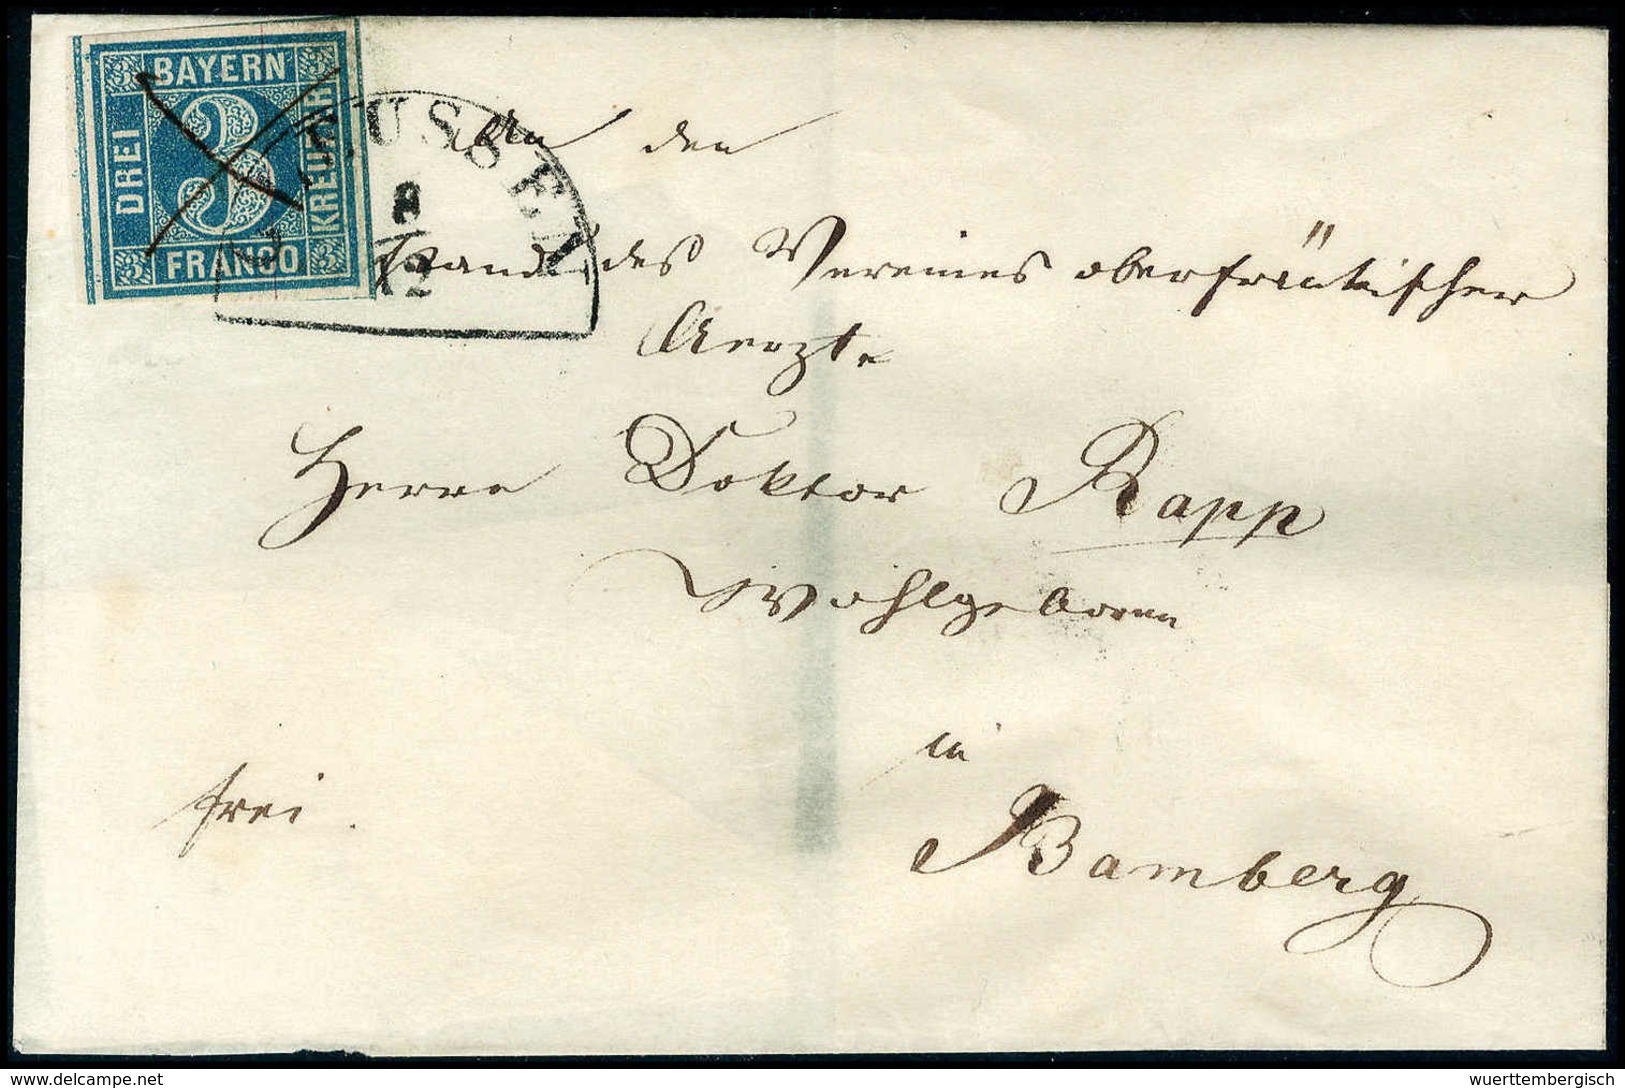 BAYERN
DREI
3
KREUZER
FRANCO
3
3
3
3
8
12
An den
stand des Vereines oberfränkischer
Aerzte
Herrn Doktor Rapp
Wohlgeboren
in
frei.
Bamberg
www.delcampe.net
wuerttembergisch